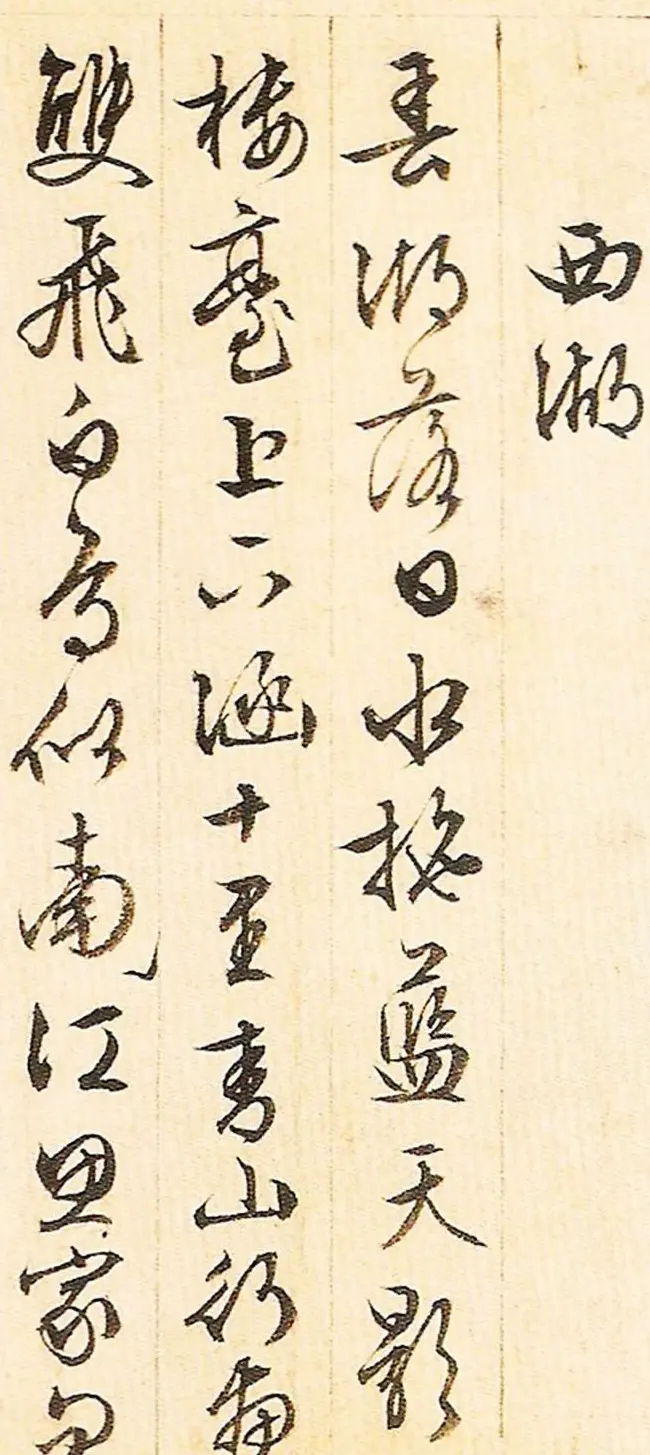 西湖
春湖落日水拖藍天影
樓臺上下涵十里青山行畫
雙飛白鳥似南江思家